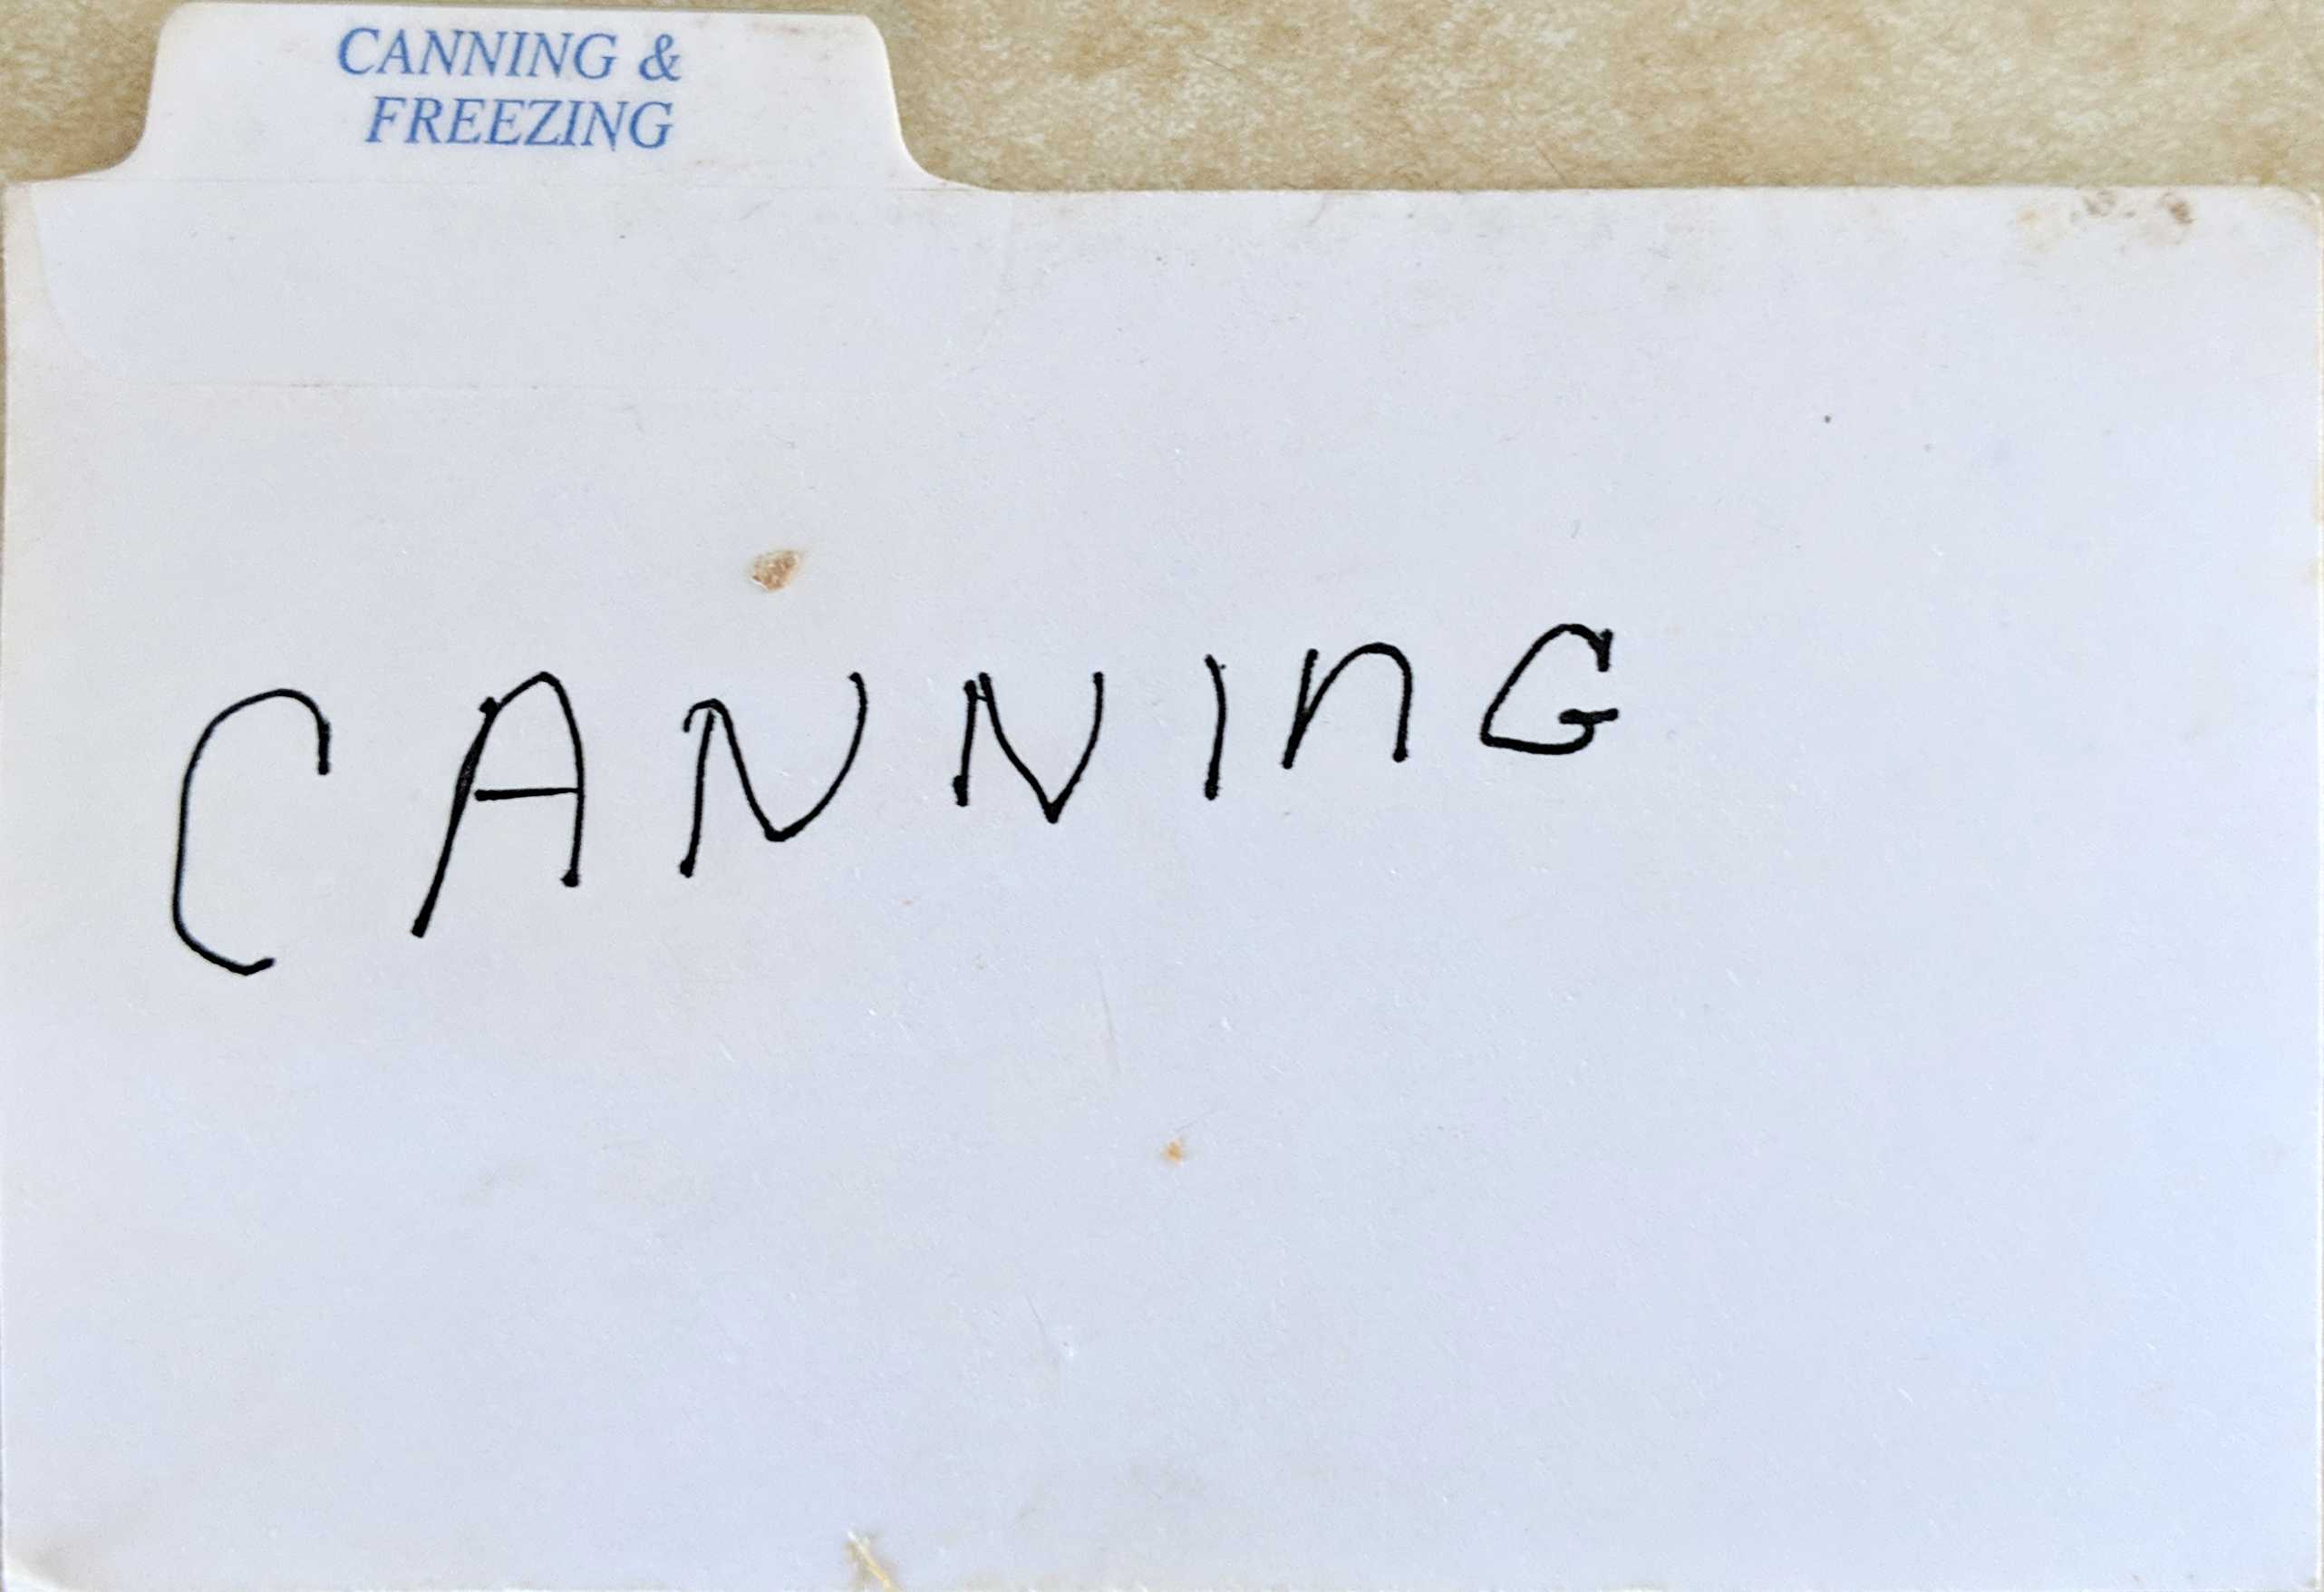 CANNING &
FREEZING
CANNInG